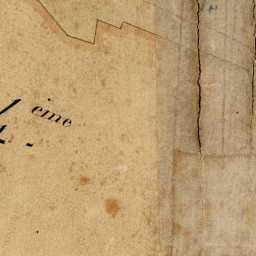 4 eme